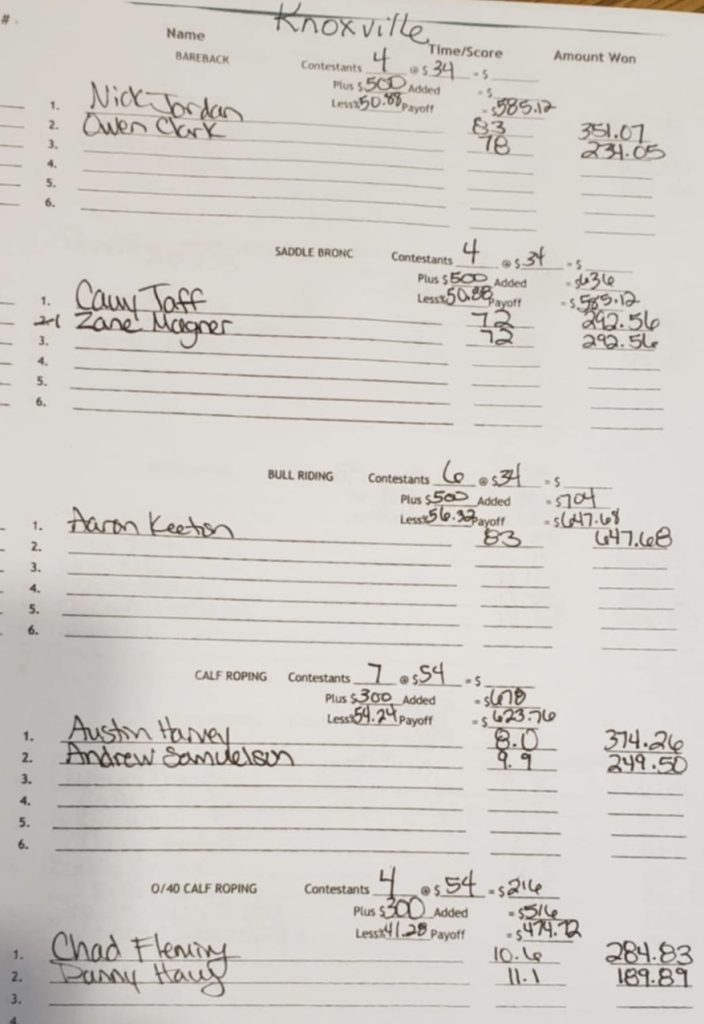 #.
Knoxville
Name Time/Score Amount Won
BAREBACK Contestants 4 @ $ 34 = $
Plus $ 500 Added = $
Less% 50.88 Payoff = $ 585.12
1. Nick Jordan 83 351.07
2. Owen Clark 78 234.05
3.
4.
5.
6.
SADDLE BRONC Contestants 4 @ $ 34 = $
Plus $ 500 Added = $ 636
Less% 50.88 Payoff = $ 585.12
1. Taff 72 292.56
Zane Magner 72 292.56
3.
4.
5.
6.
BULL RIDING Contestants 6 @ $ 34 = $
Plus $ 500 Added = $ 704
Less% 56.32 Payoff = $ 647.68
1. Aaron Keeton 83 647.68
2.
3.
4.
5.
6.
CALF ROPING Contestants 7 @ $ 54 = $
Plus $ 300 Added = $ 678
Less% 54.24 Payoff = $ 623.76
1. Austin Harvey 8.0 374.26
2. Andrew Samuelson 9.9 249.50
3.
4.
5.
6.
O/40 CALF ROPING Contestants 4 @ $ 54 = $ 216
Plus $ 300 Added = $ 516
Less% 41.28 Payoff = $ 474.72
1. Chad Fleming 10.6 284.83
2. Danny Haug 11.1 189.89
3.
4.